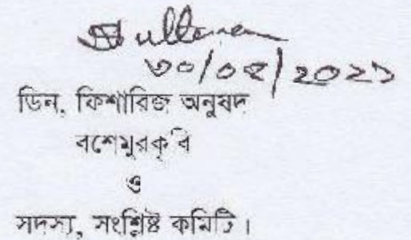 ৩০/০৫/২০২১
ডিন, ফিশারিজ অনুষদ
বশেমুরকৃবি
ও
সদস্য, সংশ্লিষ্ট কমিটি।